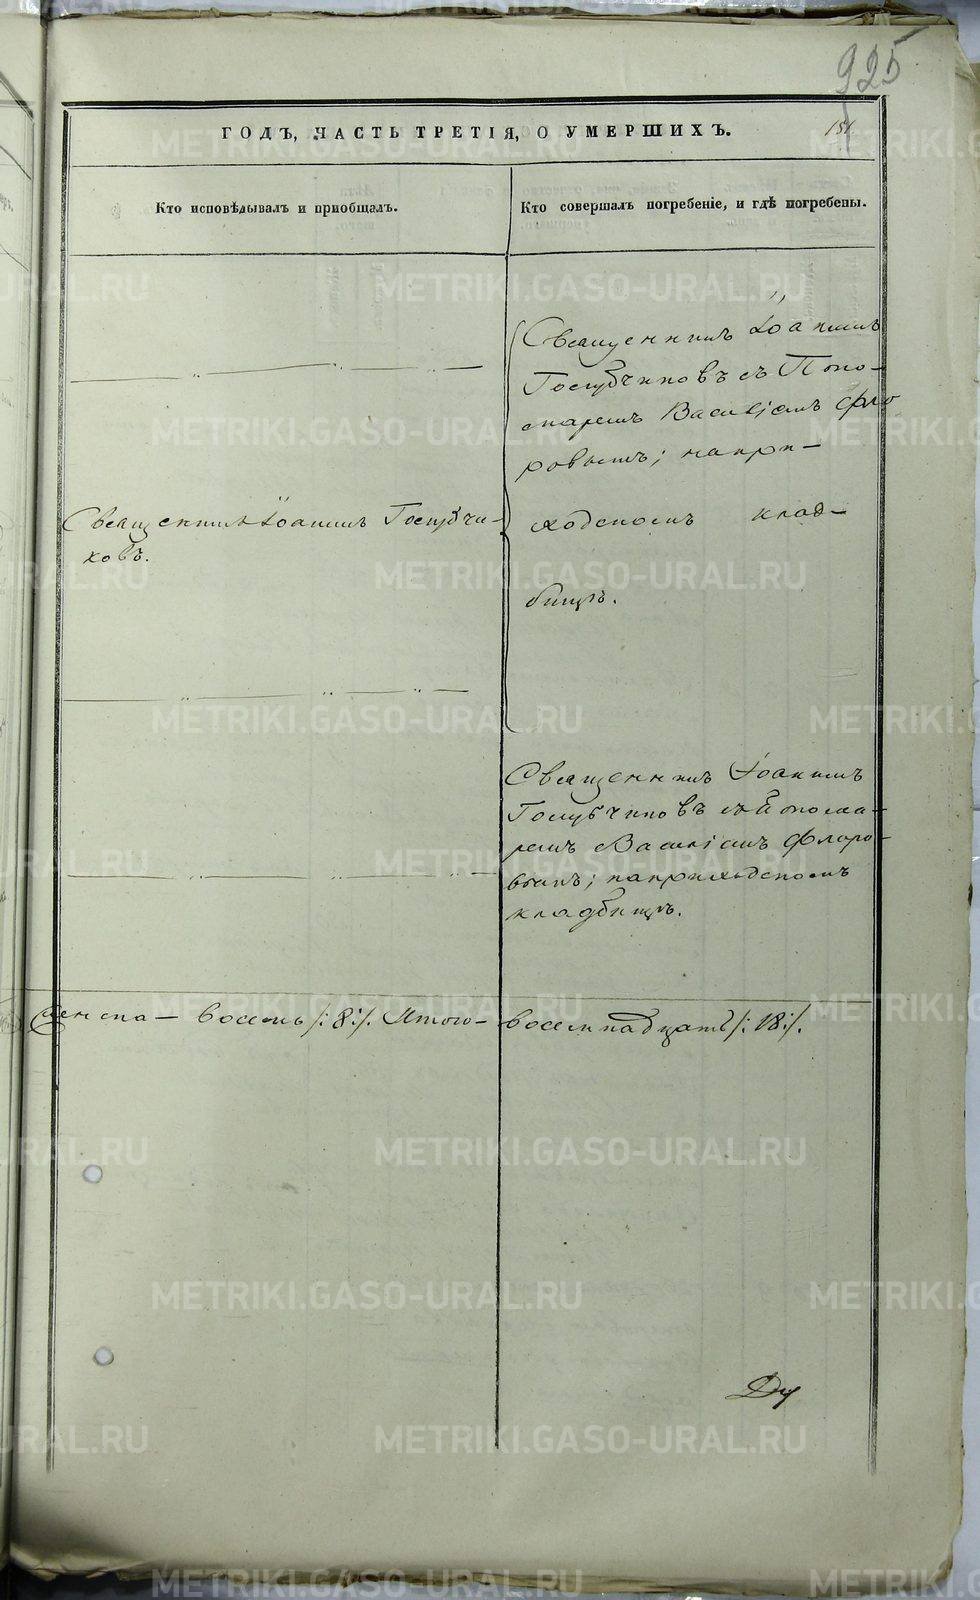 925
ГОДЪ, ЧАСТЬ ТРЕТІЯ, О УМЕРШИХЪ.
151
Кто исповѣдывалъ и пріобщалъ.
Кто совершалъ погребеніе, и гдѣ погребены.
Священникъ Іоаннъ
Голубчиковъ съ Поно-
маремъ Василіемъ Фло
ровымъ; на при-
Священникъ Іоаннъ Голубчи-
ковъ.
ходскомъ клад-
бищѣ.
Священникъ Іоаннъ
Голубчиковъ съ Понома-
ремъ Василіемъ Флоро-
вымъ; на приходскомъ
кладбищѣ.
женска – восемь /: 8 :/. Итого – восемнадцать /: 18 :/.
METRIKI.GASO-URAL.RU